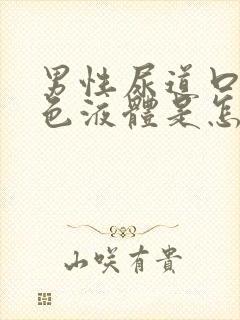 男性尿道口
色液體是怎
山咲有貴